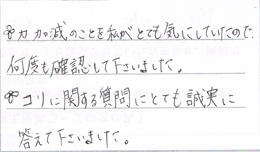 ※力加減のことを私がとても気にしていたので、
何度も確認して下さいました。
※コリに関する質問にとても誠実に
答えて下さいました。